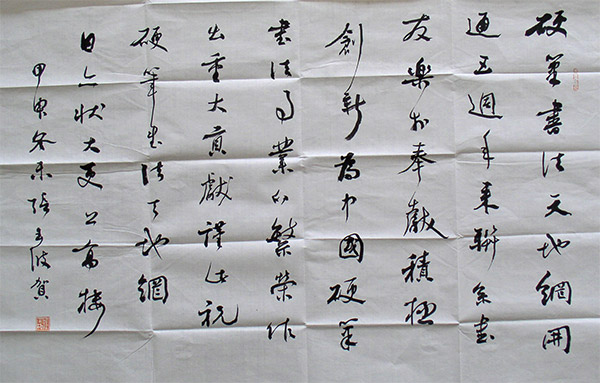 硬筆書法天地網開
通五週年来聯系書
友樂於奉獻積極
創新為中國硬筆
書法事業的繁榮作
出重大貢獻謹此祝
硬筆書法天地網
日益状大更上高楼
甲申冬末張波賀